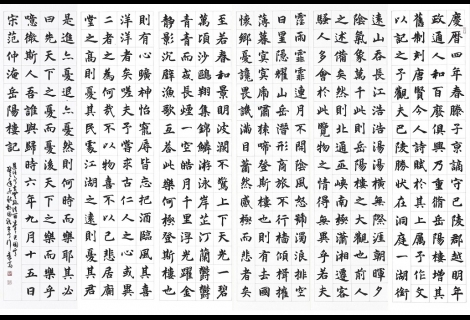 慶曆四年春滕子京謫守巴陵郡越明年
政通人和百廢俱興乃重脩岳陽樓增其
舊制刻唐賢今人詩賦於其上屬予作文
以記之予觀夫巴陵勝狀在洞庭一湖銜
遠山吞長江浩浩湯湯橫無際涯朝暉夕
陰氣象萬千此則岳陽樓之大觀也前人
之述備矣然則北通巫峽南極瀟湘遷客
騷人多會於此覽物之情得無異乎若夫
霪雨霏霏連月不開陰風怒號濁浪排空
日星隱耀山岳潛形商旅不行檣傾楫摧
薄暮冥冥虎嘯猿啼登斯樓也則有去國
懷鄉憂讒畏譏滿目蕭然感極而悲者矣
至若春和景明波瀾不驚上下天光一碧
萬頃沙鷗翔集錦鱗游泳岸芷汀蘭鬱鬱
青青而或長煙一空皓月千里浮光躍金
靜影沉璧漁歌互答此樂何極登斯樓也
則有心曠神怡寵辱皆忘把酒臨風其喜
洋洋者矣嗟夫予嘗求古仁人之心或異
二者之為何哉不以物喜不以己悲居廟
堂之高則憂其民處江湖之遠則憂其君
是進亦憂退亦憂然則何時而樂耶其必
曰先天下之憂而憂後天下之樂而樂乎
噫微斯人吾誰與歸時六年九月十五日
宋范仲淹岳陽樓記